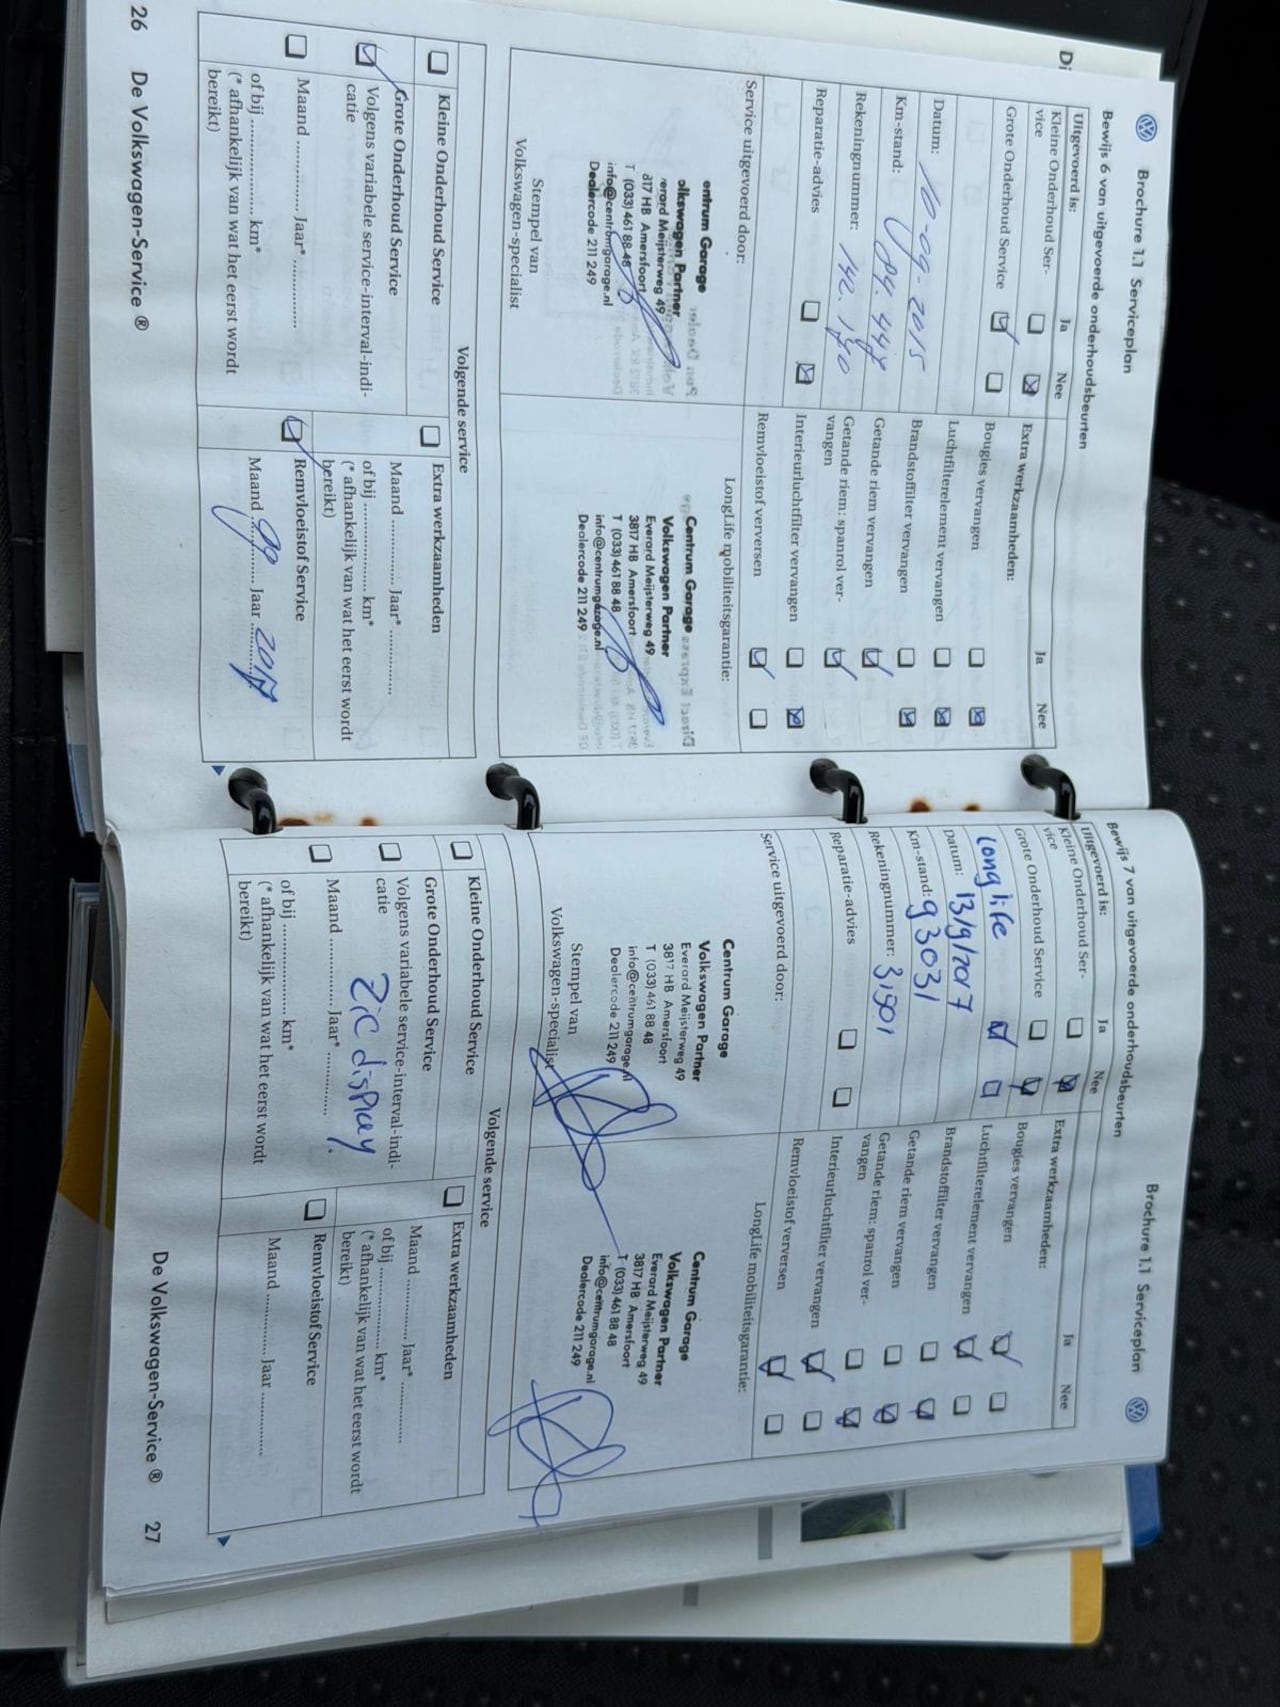 Brochure 1.1 Serviceplan
Bewijs 6 van uitgevoerde onderhoudsbeurten
Uitgevoerd is:
Ja
Nee
Kleine Onderhoud Ser-
vice
Grote Onderhoud Service
Datum: 10-09-2015
Km-stand: 84.448
Rekeningnummer: 142.140
Reparatie-advies
Extra werkzaamheden:
Ja
Nee
Bougies vervangen
Luchtfilterelement vervangen
Brandstoffilter vervangen
Getande riem vervangen
Getande riem: spanrol ver-
vangen
Interieurluchtfilter vervangen
Remvloeistof verversen
Service uitgevoerd door:
LongLife mobiliteitsgarantie:
entrum Garage
olkswagen Partner
erard Meijsterweg 49
817 HB Amersfoort
T (033) 461 88 48
info@centrumgarage.nl
Dealercode 211 249
Stempel van
Volkswagen-specialist
Centrum Garage
Volkswagen Partner
Everard Meijsterweg 49
3817 HB Amersfoort
T (033) 461 88 48
info@centrumgarage.nl
Dealercode 211 249
Volgende service
Kleine Onderhoud Service
Grote Onderhoud Service
Volgens variabele service-interval-indi-
catie
Maand ............ Jaar* ...............
of bij .................. km*
(* afhankelijk van wat het eerst wordt
bereikt)
Extra werkzaamheden
Maand ............ Jaar* ...............
of bij .................. km*
(* afhankelijk van wat het eerst wordt
bereikt)
Remvloeistof Service
Maand 09 Jaar 2017
26 De Volkswagen-Service ®
Di
Brochure 1.1 Serviceplan
Bewijs 7 van uitgevoerde onderhoudsbeurten
Uitgevoerd is:
Ja
Nee
Kleine Onderhoud Ser-
vice
Grote Onderhoud Service
longlife
Datum: 13/9/2017
Km-stand: 93031
Rekeningnummer: 31901
Reparatie-advies
Extra werkzaamheden:
Ja
Nee
Bougies vervangen
Luchtfilterelement vervangen
Brandstoffilter vervangen
Getande riem vervangen
Getande riem: spanrol ver-
vangen
Interieurluchtfilter vervangen
Remvloeistof verversen
Service uitgevoerd door:
LongLife mobiliteitsgarantie:
Centrum Garage
Volkswagen Partner
Everard Meijsterweg 49
3817 HB Amersfoort
T (033) 461 88 48
info@centrumgarage.nl
Dealercode 211 249
Stempel van
Volkswagen-specialist
Centrum Garage
Volkswagen Partner
Everard Meijsterweg 49
3817 HB Amersfoort
T (033) 461 88 48
info@centrumgarage.nl
Dealercode 211 249
Volgende service
Kleine Onderhoud Service
Grote Onderhoud Service
Volgens variabele service-interval-indi-
catie
zie display
Maand ............ Jaar* ...............
of bij .................. km*
(* afhankelijk van wat het eerst wordt
bereikt)
Extra werkzaamheden
Maand ............ Jaar* ...............
of bij .................. km*
(* afhankelijk van wat het eerst wordt
bereikt)
Remvloeistof Service
Maand ............ Jaar ...............
De Volkswagen-Service ® 27